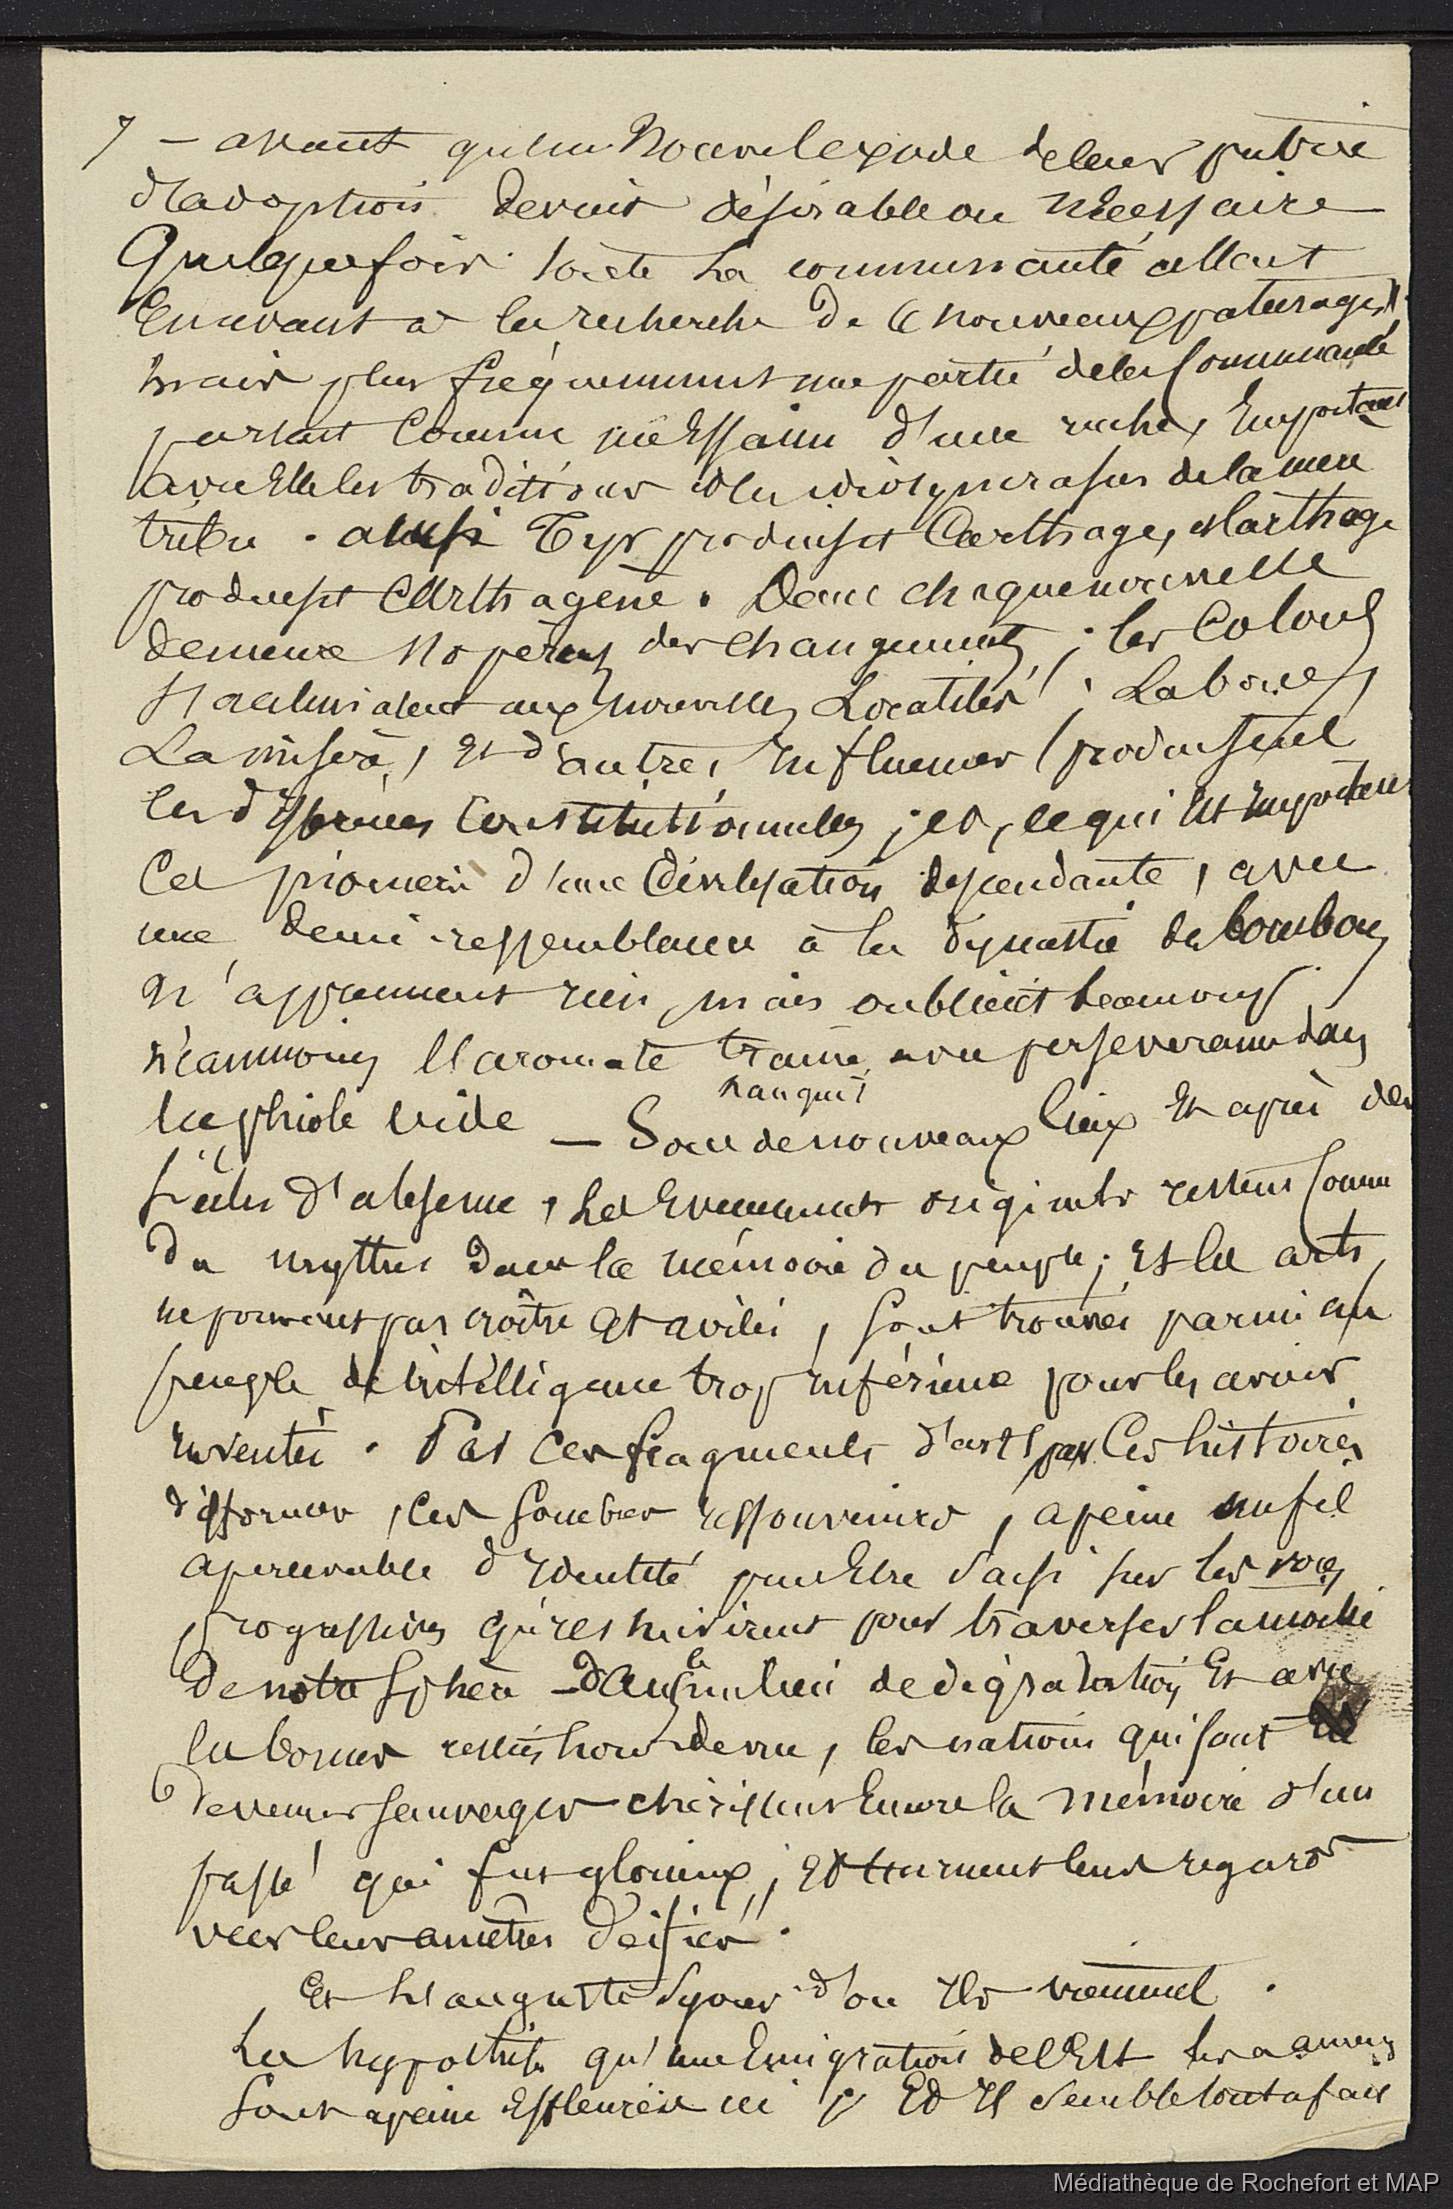 7 – avant qu'un Nouvel exode de leur patrie
d'adoption devint désirable ou nécessaire
Quelquefois toute la communauté allait
En avant à la recherche de nouveaux paturages,
mais plus fréquemment une partie de la Communauté
partait Comme un Essaim d'une ruche, Emportant
avec Elle les traditions et les idiosyncrasies de la mère
tribu . ainsi Tyr produisit Carthage, et Carthage
produisit Carthagène . Dans chaque nouvelle
demeure s'opèrent des Changements ; les Colons
s'acclimatent aux nouvelles Localités ; La boue,
La misère, Et d'autres Influences produisent
les d constitutionnelles ; et, ce qui Est important
Ces pionniers d'une Civilisation dépendante, avec
une demi-ressemblance à la dynastie des bourbons
N'apprennent rien, mais oublient beaucoup
néanmoins l'aromate traine avec persévérance dans
la phiole vide – Sous de nouveaux lieux Et après des
nanquit
siècles d'absence, Les Evenements originels restent Comme
des mythes dans la mémoire du peuple ; Et les arts,
ne pouvant pas croître Et avilis, sont trouvés parmi un
peuple de l'intelligence trop inférieure pour les avoir
Inventés . Par ces fragments d'arts par Ces histoires
difformes, ces sombres ressouvenirs, à peine un fil
apercevable d'Identité peut Etre saisi sur les voies
progressives qu'ils suivirent pour traverser la moitié
De notre Sphère – dans le milieu de dégradation Et avec
les bornes restées hors de vue, les nations qui sont
devenues sauvages chérissent Encore la mémoire d'un
passé qui fut glorieux, Et tournent leurs regards
vers leurs ancêtres déifiés" .
Et l'auguste séjour d'ou Ils viennent .
Les hypothèses qu'une Emigration de l'Est les a amenés
Sont à peine Effleurées ici ; Et Il semble tout a fait
Médiathèque de Rochefort et MAP